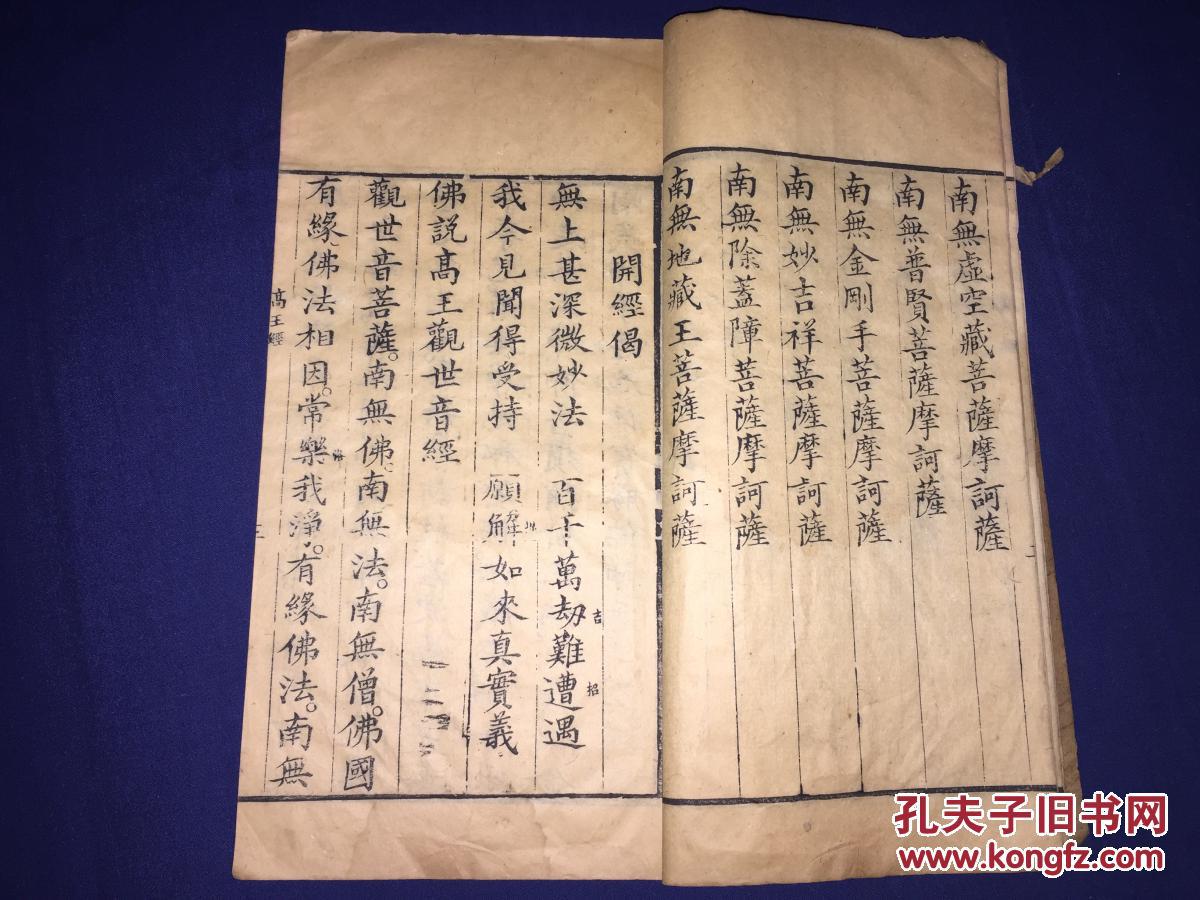 南無虛空藏菩薩摩訶薩
南無普賢菩薩摩訶薩
南無金剛手菩薩摩訶薩
南無妙吉祥菩薩摩訶薩
南無除蓋障菩薩摩訶薩
南無地藏王菩薩摩訶薩
開經偈
無上甚深微妙法 百千萬劫難遭遇
吉
招
我今見聞得受持 願解如來真實義
佛説髙王觀世音經
觀世音菩薩。南無佛。南無法。南無僧。佛國
有緣。佛法相因。常樂我淨。有緣佛法。南無
髙王經
三
孔夫子旧书网
www.kongfz.com